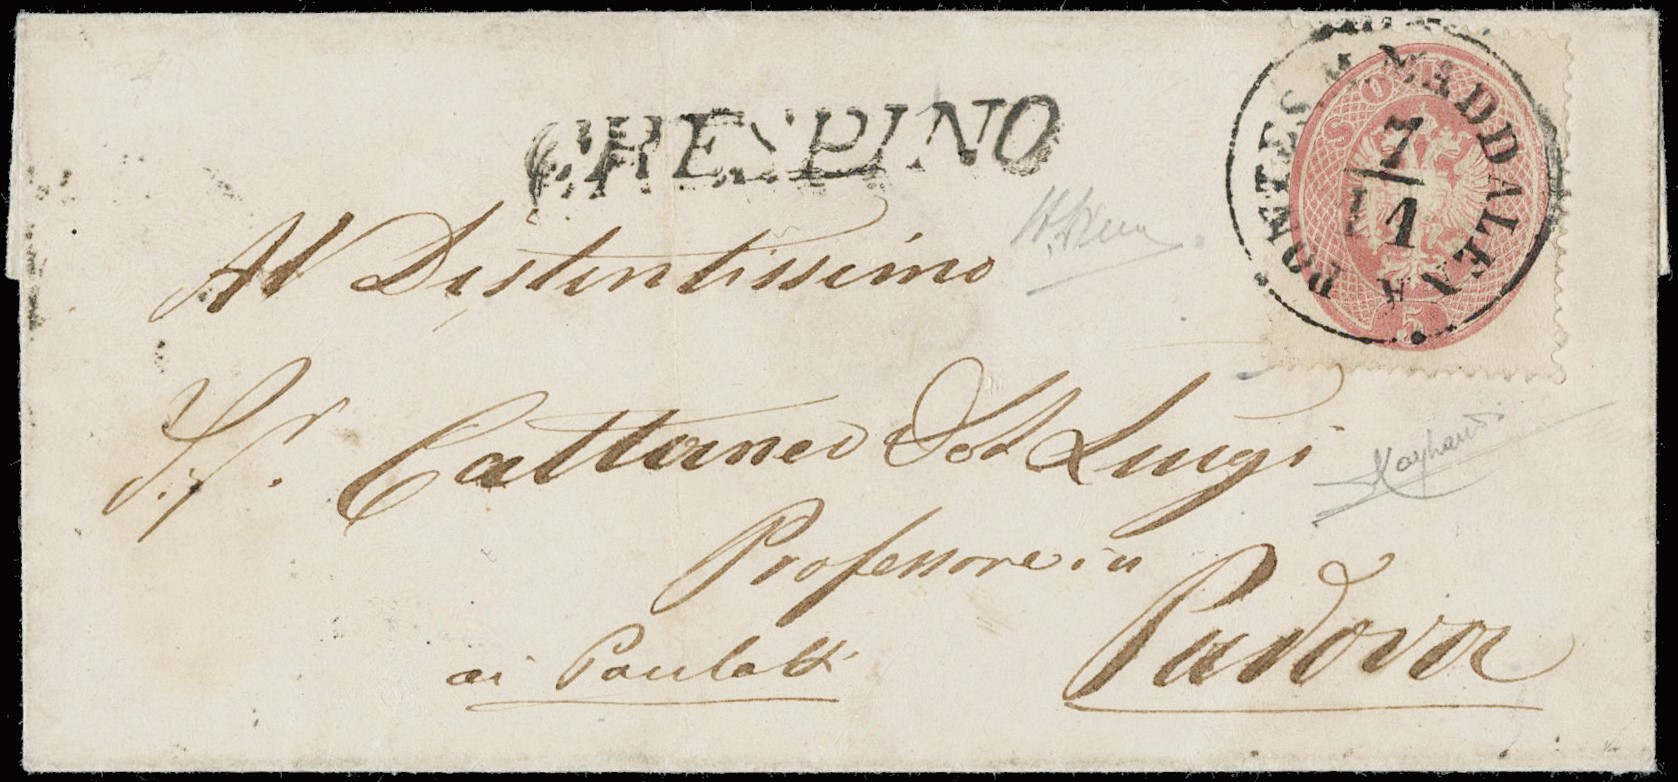 CRESPINO
PONTE S. M. MADDALENA
7
11
SOLDI
5
Al Distintissimo
S.r Cattaneo Dot Luigi
Professore in
ai Paolotti Padova